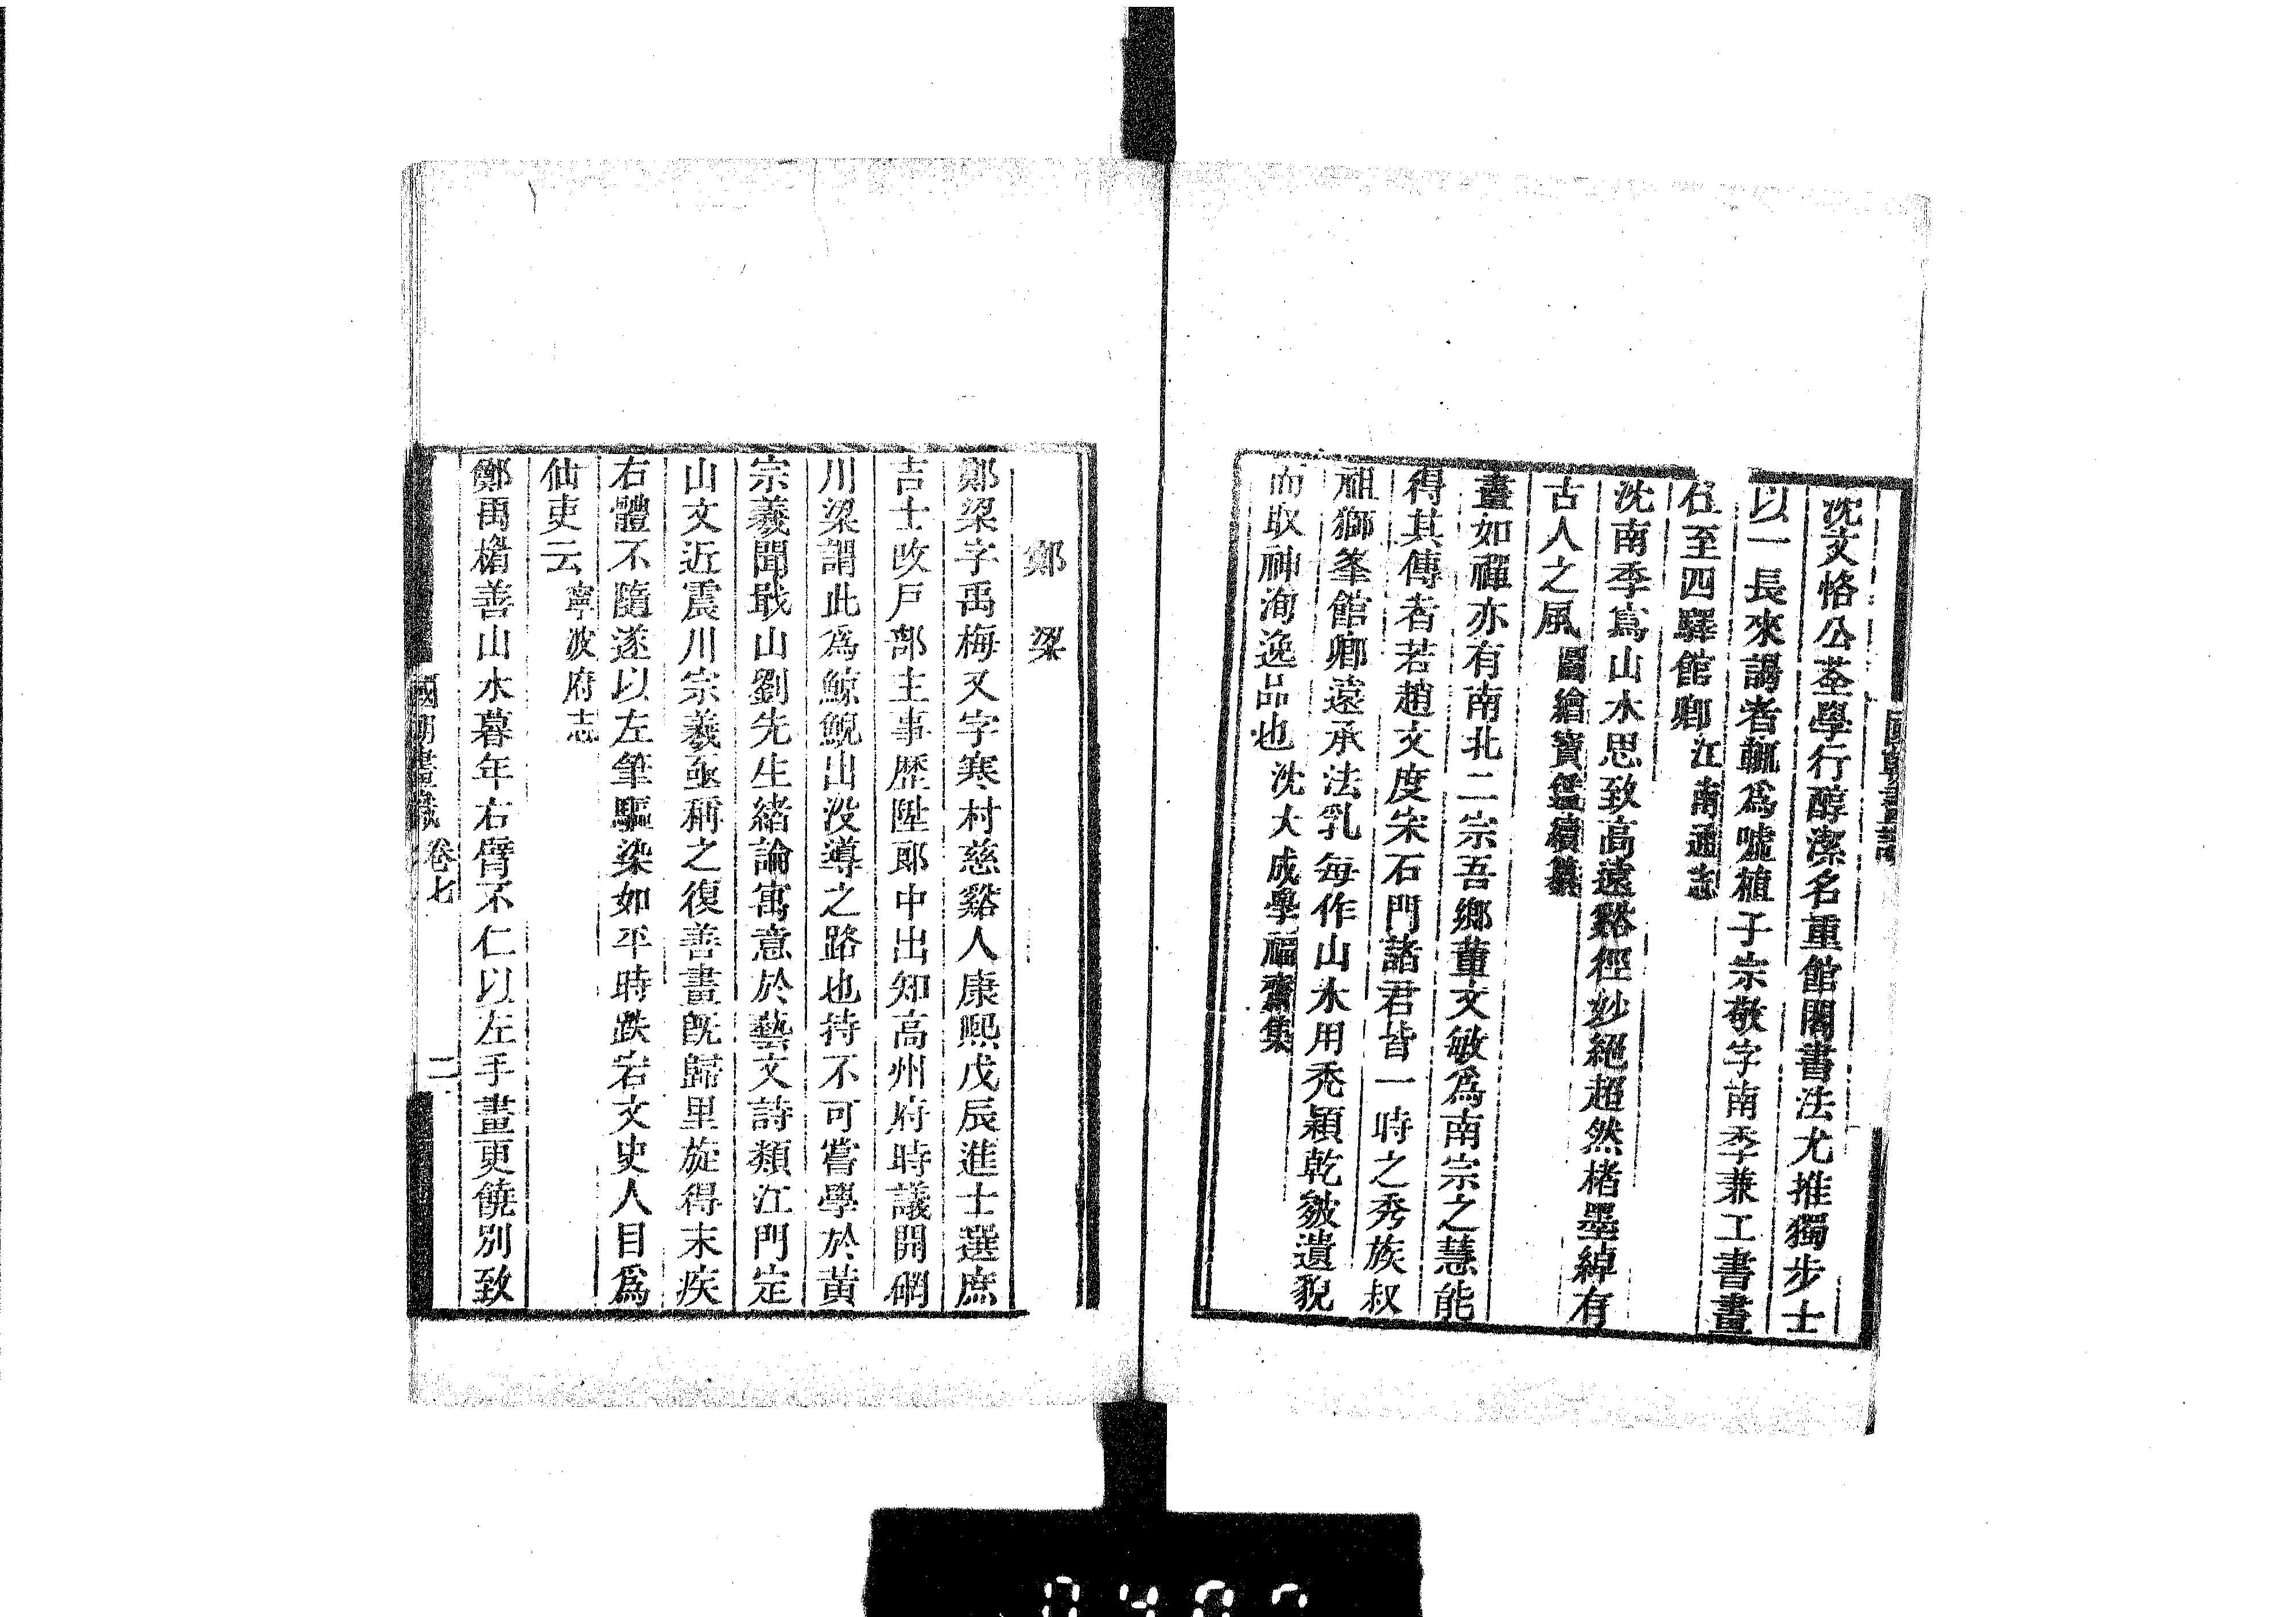 沈文恪公荃學行醇潔名重館閣書法尤推獨步士
以一長來謁者輒爲噓植子宗敬字南季兼工書畫
仕至四驛館卿江南通志
沈南季寫山水思致高遠谿徑妙絕超然楮墨綽有
古人之風圖繪寶鑑續纂
畫如禪亦有南北二宗吾鄉董文敏爲南宗之慧能
得其傳者若趙文度宋石門諸君皆一時之秀族叔
祖獅峯館卿遠承法乳每作山水用禿穎乾皴遺貌
而取神洵逸品也沈大成學福齋集
鄭梁
鄭梁字禹梅又字寒村慈谿人康熙戊辰進士選庶
吉士改戸部主事歷陞郎中出知高州府時議開硎
川梁謂此爲鯨鯢出没導之路也持不可嘗學於黃
宗羲聞戢山劉先生緒論寓意於藝文詩類江門定
山文近震川宗羲亟稱之復善畫旣歸里旋得末疾
右體不隨遂以左筆驅染如平時跌宕文史人目爲
仙吏云寧波府志
鄭禹楳善山水暮年右臂不仁以左手畫更饒別致
國朝畫識 卷七 二